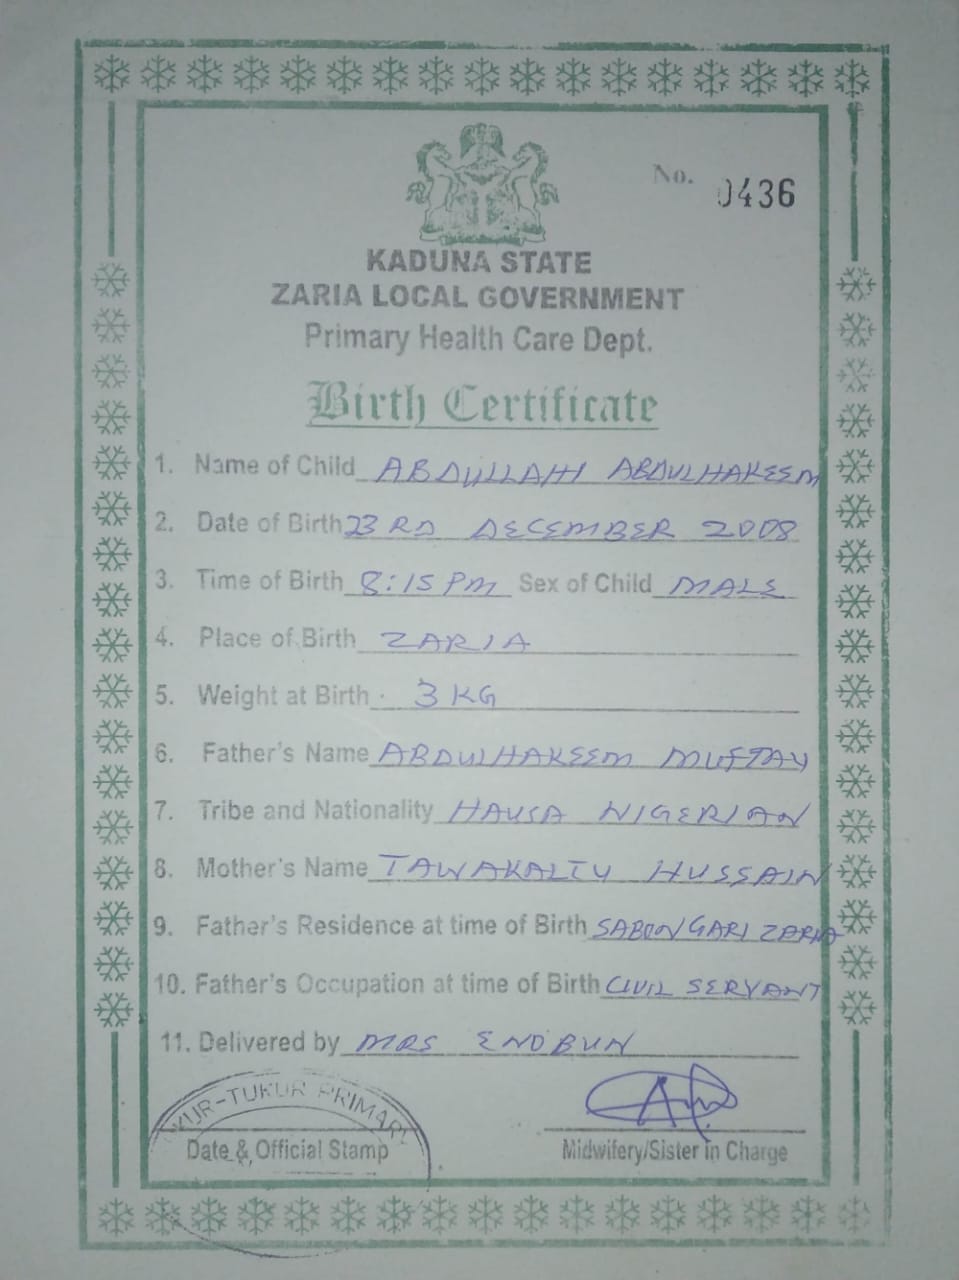 No. 0436
KADUNA STATE
ZARIA LOCAL GOVERNMENT
Primary Health Care Dept.
Birth Certificate
1. Name of Child ABDULLAHI ABDULHAKEEM
2. Date of Birth 23RD DECEMBER 2008
3. Time of Birth 8:15PM Sex of Child MALE
4. Place of Birth ZARIA
5. Weight at Birth 3KG
6. Father's Name ABDULHAKEEM MUFTAU
7. Tribe and Nationality HAUSA NIGERIAN
8. Mother's Name TAWAKALTU HUSSAIN
9. Father's Residence at time of Birth SABON GARI ZARIA
10. Father's Occupation at time of Birth CIVIL SERVANT
11. Delivered by MRS ENOBUN
TUKUR PRIMARY
Date & Official Stamp
Midwifery/Sister in Charge